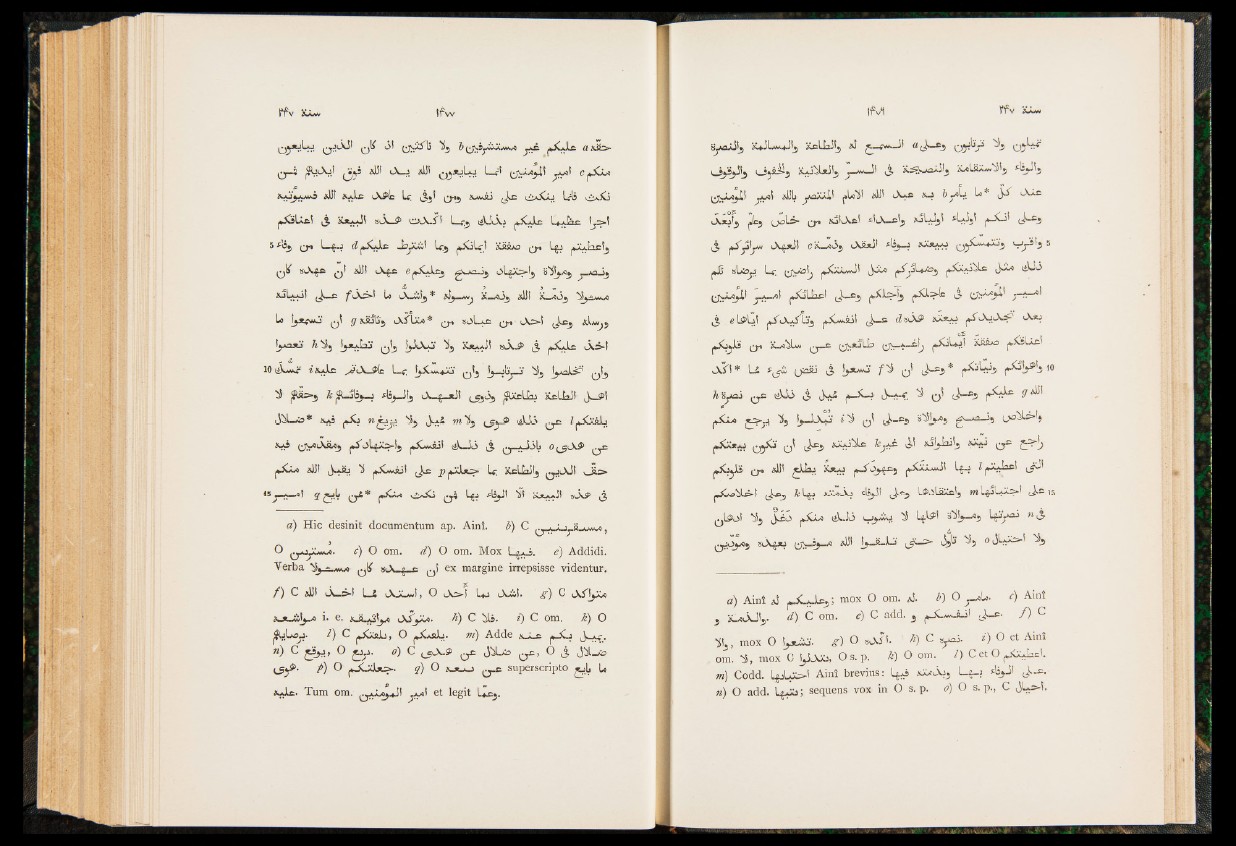 سنة ٢٤٧ ١٤٧٦
تميلون ولا ترتابون وعلى a السمع له والطاعة والمسالمة والنصرة
والوفاء والاستقامة والنصيحة فى السرّ والعلانية والخفوف والوقوف
عند كلّ *ما يأمر b به عبد الله الامام المنتصر بالله امير المؤمنين
وعلى انكم اولياء اوليائه واعداء اعدائه من خاصّ وعامّ وأبعد
5 واقرب وتتمسّكون ببيعته بوفاء العقد وذمّة c العهد سرائركم فى
ذلك مثل علانيتكم وضمائركم مثل السنتكم راضين بما يرضاه لكم
امير المؤمنين فى عاجلكم وآجلكم وعلى اعطائكم امير المؤمنين
بعد تجديدكم بيعته هذه d على انفسكم وتأكيدكم ايّاها e فى
اعناقكم صفقة أيمانكم راغبين طائعين عن سلامة من قلوبكم
10 واهوائكم ونيّاتكم *وعلى ان لا f تسعوا فى نقض شىء ممّا *اكّد
الله g عليكم وعلى ان لا يميل بكم مميل فى ذلك عن نصرة h
واخلاص ونصح وموالاة وعلى ان لا i تُبدّلوا ولا يرجع منكم
راجع عن نيّته وانطوائه الى غير k علانيته وعلى ان تكون بيعتكم
التى اعطيتم l بها السنتكم وعهودكم بيعة يطلع الله من قلوبكم
15 على اجتبائها m واعتقادها وعلى الوفاء بذمّته بها k وعلى اخلاصكم
فى n نصرتها وموالاة اهلها لا يشوب ذلك منكم دَغَلٌ ولا ادهان
ولا احتيال o ولا تأوّل حتى تلقوا الله موفين بعهده ومؤدّين
a) Ainî وعليكم له; mox O om. له. b) O يامر ما. c) Ainî
والذمة و. d) C om. e) C add. على انفسكم و. f) C
ولا, mox O تشعوا. g) O اكده. h) C نصره. i) O et Ainî
om. لا, mox C تبدلوا, O s. p. k) O om. l) C et O اعطيتكم.
m) Codd. اجتبابها Ainî brevius: على الوفاء بها وبذمته فيها.
n) O add. نيتها; sequens vox in O s. p. o) O s. p., C احيال.
سنة ٢٤٧ ١٤٧٧
حقّه a عليكم غير مستشرفين b ولا ناكثين اذ كان الذين يبايعون
منكم c امير المؤمنين انما يبايعون الله يد الله فوق ايديهم فمن
نكث فانّما ينكث على نفسه ومن اوفى بما عاهد عليه الله فسيؤتيه
اجرا عظيما عليكم بذلك وبما اكّدت هذه البيعة فى اعناقكم
5 واعطيتم بها من صفقة ايمانكم وما اشترط عليكم d بها من وفاء
ونصر وموالاة واجتهاد ونصح وعليكم e عهد الله انّ عهده كان
مسئولا وذمّة الله وذمّة رسوله *واشدّ ما اخذ f على انبيائه
ورسله وعلى احد من عباده من *متأكّد وثائقه g ان تسمعوا ما
اخذ عليكم فى هذه البيعة ولا تبدّلوا وان تطيعوا ولا h تعصوا
10 وان تخلصوا ولا ترتابوا وان تتمسّكوا بما عاهدتم عليه i تمسّك
اهل الطاعة بطاعتهم وذوى العهد والوفاء بوفائهم k وحقّهم لا
يلفتكم l عن ذلك هوى ولا m ميل ولا يزيغ n بكم فيه *ضلال
عن هدى o باذلين فى ذلك انفسكم واجتهادكم ومقدّمين فيه
حقّ الدين والطاعة بما جعلتم p على انفسكم لا يقبل الله منكم
15 فى هذه البيعة الّا الوفاء بها فمن نكث منكم *ممّن بايع q امير
a) Hic desinit documentum ap. Ainî. b) C
O c) O om. d) O om. Mox فيها. e) Addidi.
Verba ان عهده كان مسئولا ex margine irrepsisse videntur.
f) C استد لما اخذ الله, O اشد بما أُخِذ. g) C متواكد
i. e. متوكّد مواثيقه. h) C فلا. i) C om. k) O
l) C , O يلفكم. m) Adde يميل بكم عنه.
n) C يوقع, O يزيع. o) C عن ضلال هدى, O عن, ضلال فى
هوى. p) O جعلتكم. q) O عن بيعه superscripto ما بايع
عليه. Tum om. امير المؤمنين et legit وعما.